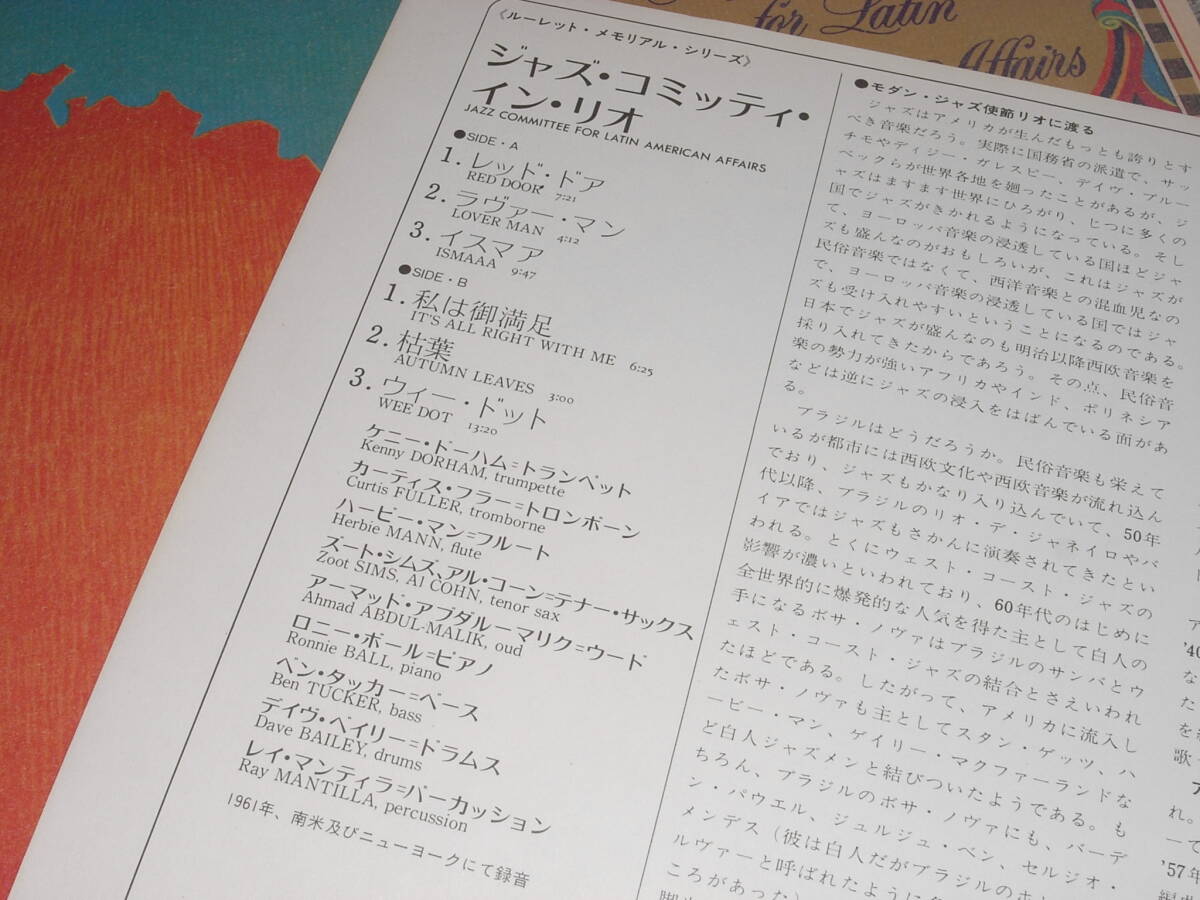 for Latin
Affairs
《ルーレット・メモリアル・シリーズ》
ジャズ・コミッティ・
イン・リオ
JAZZ COMMITTEE FOR LATIN AMERICAN AFFAIRS
●SIDE・A
1. レッド・ドア
RED DOOR 7:21
2. ラヴァー・マン
LOVER MAN 4:12
3. イスマア
ISMAAA 9:47
●SIDE・B
1. 私は御満足
IT'S ALL RIGHT WITH ME 6:25
2. 枯葉
AUTUMN LEAVES 3:00
3. ウィー・ドット
WEE DOT 13:20
ケニー・ドーハム=トランペット
Kenny DORHAM, trumpette
カーティス・フラー=トロンボーン
Curtis FULLER, tromborne
ハービー・マン=フルート
Herbie MANN, flute
ズート・シムズ、アル・コーン=テナー・サックス
Zoot SIMS, Al COHN, tenor sax
アーマッド・アブダルーマリク=ウード
Ahmad ABDUL-MALIK, oud
ロニー・ボール=ピアノ
Ronnie BALL, piano
ベン・タッカー=ベース
Ben TUCKER, bass
デイヴ・ベイリー=ドラムス
Dave BAILEY, drums
レイ・マンティラ=パーカッション
Ray MANTILLA, percussion
1961年、南米及びニューヨークにて録音
●モダン・ジャズ使節リオに渡る
ジャズはアメリカが生んだもっとも誇りとす
べき音楽だろう。実際に国務省の派遣で、サッ
チモやディジー・ガレスピー、デイヴ・ブルー
ベックらが世界各地を廻ったことがあるが、ジ
ャズはますます世界にひろがり、じつに多くの
国でジャズがきかれるようになっている。そし
て、ヨーロッパ音楽の浸透している国ほどジャ
ズも盛んなのがおもしろいが、これはジャズが
民俗音楽ではなくて、西洋音楽との混血児なの
で、ヨーロッパ音楽の浸透している国ではジャ
ズも受け入れやすいということになるのである。
日本でジャズが盛んなのも明治以降西欧音楽を
採り入れてきたからであろう。その点、民俗音
楽の勢力が強いアフリカやインド、ポリネシア
などは逆にジャズの浸入をはばんでいる面があ
る。
ブラジルはどうだろうか。民俗音楽も栄えて
いるが都市には西欧文化や西欧音楽が流れ込ん
でおり、ジャズもかなり入り込んでいて、50年
代以降、ブラジルのリオ・デ・ジャネイロやバ
イアではジャズもさかんに演奏されてきたとい
われる。とくにウェスト・コースト・ジャズの
影響が濃いといわれており、60年代のはじめに
全世界的に爆発的な人気を得た主として白人の
手になるボサ・ノヴァはブラジルのサンバとウ
ェスト・コースト・ジャズの結合とさえいわれ
たほどである。したがって、アメリカに流入し
たボサ・ノヴァも主としてスタン・ゲッツ、ハ
ービー・マン、ゲイリー・マクファーランドな
ど白人ジャズメンと結びついたようである。も
ちろん、ブラジルのボサ・ノヴァにも、バーデ
ン・パウエル、ジュルジュ・ベン、セルジオ・
メンデス（彼は白人だがブラジルのホ
ルヴァーと呼ばれたように
ころがあった）
'40
な
た
を
歌
れ。
'57年